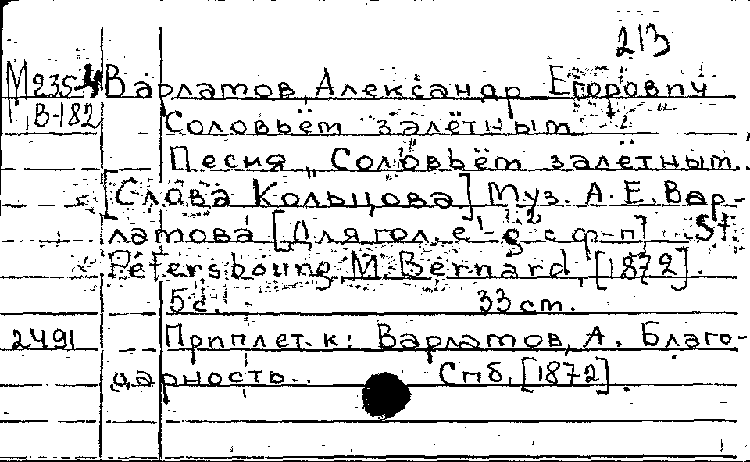 213
М 235-4 Варламов, Александр Егорович
В-182 Соловьём залётным
Песня „Соловьём залётным..
[Слова Кольцова] Муз. А. Е. Вар-
ламова [Для гол. e¹-g² с ф-п] St.
Petersbourg, M. Bernard, [1872].
5 с. 33 cm.
2491 Приплет. к: Варламов, А. Благо-
дарность.. Спб, [1872].